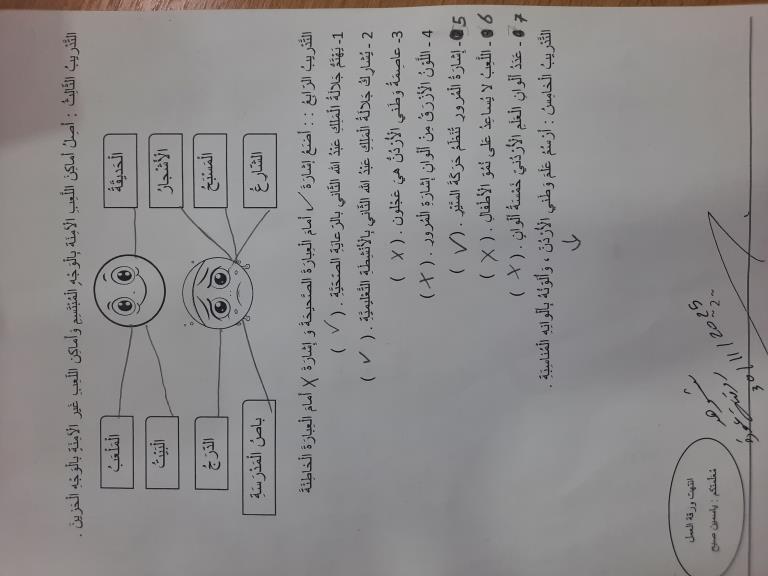 التَّدْرِيبُ الثَّالِثُ : أَصِلُ أَمَاكِنَ اللَّعِبِ الْآمِنَةِ بِالْوَجْهِ الْمُبْتَسِمِ وَأَمَاكِنَ اللَّعِبِ غَيْرِ الْآمِنَةِ بِالْوَجْهِ الْحَزِينِ .
الْحَدِيقَةُ
الْمَلْعَبُ
الْأَشْجَارُ
الْبَيْتُ
الْمَسْبَحُ
الدَّرَجُ
الشَّارِعُ
بَاصُ الْمَدْرَسَةِ
التَّدْرِيبُ الرَّابِعُ : : أَضَعُ إِشَارَةَ ✓ أَمَامَ الْعِبَارَةِ الصَّحِيحَةِ وَ إِشَارَةَ X أَمَامَ الْعِبَارَةِ الْخَاطِئَةِ
1- يَهْتَمُّ جَلَالَةُ الْمَلِكِ عَبْدُ الله الثَّانِي بِالرِّعَايَةِ الصِّحِّيَّةِ . ( ✓ )
2 - يُشَارِكُ جَلَالَةُ الْمَلِكِ عَبْدُ الله الثَّانِي بِالْأَنْشِطَةِ التَّعْلِيمِيَّةِ . ( ✓ )
3- عَاصِمَةُ وَطَنِي الْأُرْدُنّ هِيَ عَجْلُون . ( X )
4 - اللَّوْنُ الْأَزْرَقُ مِنْ أَلْوَانِ إِشَارَةِ الْمُرُورِ . ( X )
5 - إِشَارَةُ الْمُرُورِ تُنَظِّمُ حَرَكَةَ السَّيْرِ . ( ✓ )
6 - اللَّعِبُ لَا يُسَاعِدُ عَلَى نُمُوِّ الْأَطْفَالِ . ( X )
7 - عَدَدُ أَلْوَانِ الْعَلَمِ الْأُرْدُنِيّ خَمْسَةُ أَلْوَانٍ . ( X )
التَّدْرِيبُ الْخَامِسُ : أَرْسُمُ عَلَمَ وَطَنِي الْأُرْدُنّ ، وَ أُلَوِّنُهُ بِأَلْوَانِهِ الْمُنَاسِبَةِ .
انتهت ورقة العمل
مُعلمتكم : ياسمين صبح